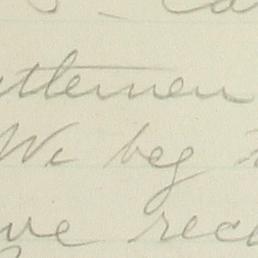 ntlemen
We beg
ve rece